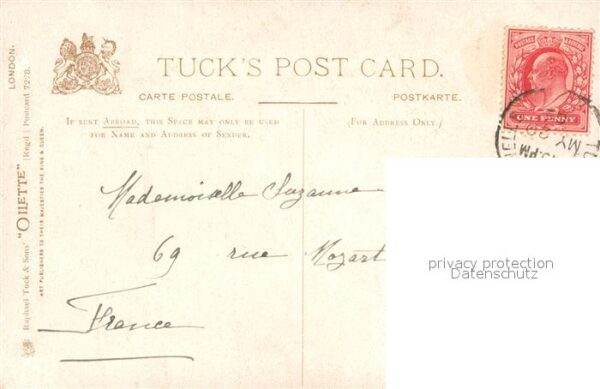 LONDON.
Raphael Tuck & Sons' "OILETTE" [Regd.] Postcard
ART PUBLISHERS TO THEIR MAJESTIES THE KING & QUEEN.
TUCK'S POST CARD.
CARTE POSTALE.
POSTKARTE.
IF SENT ABROAD, THIS SPACE MAY ONLY BE USED
FOR NAME AND ADDRESS OF SENDER.
(FOR ADDRESS ONLY.)
POSTAGE REVENUE
ONE PENNY
PM
MY
Mademoiselle Suzanne
69 rue Mozart
France
privacy protection
Datenschutz